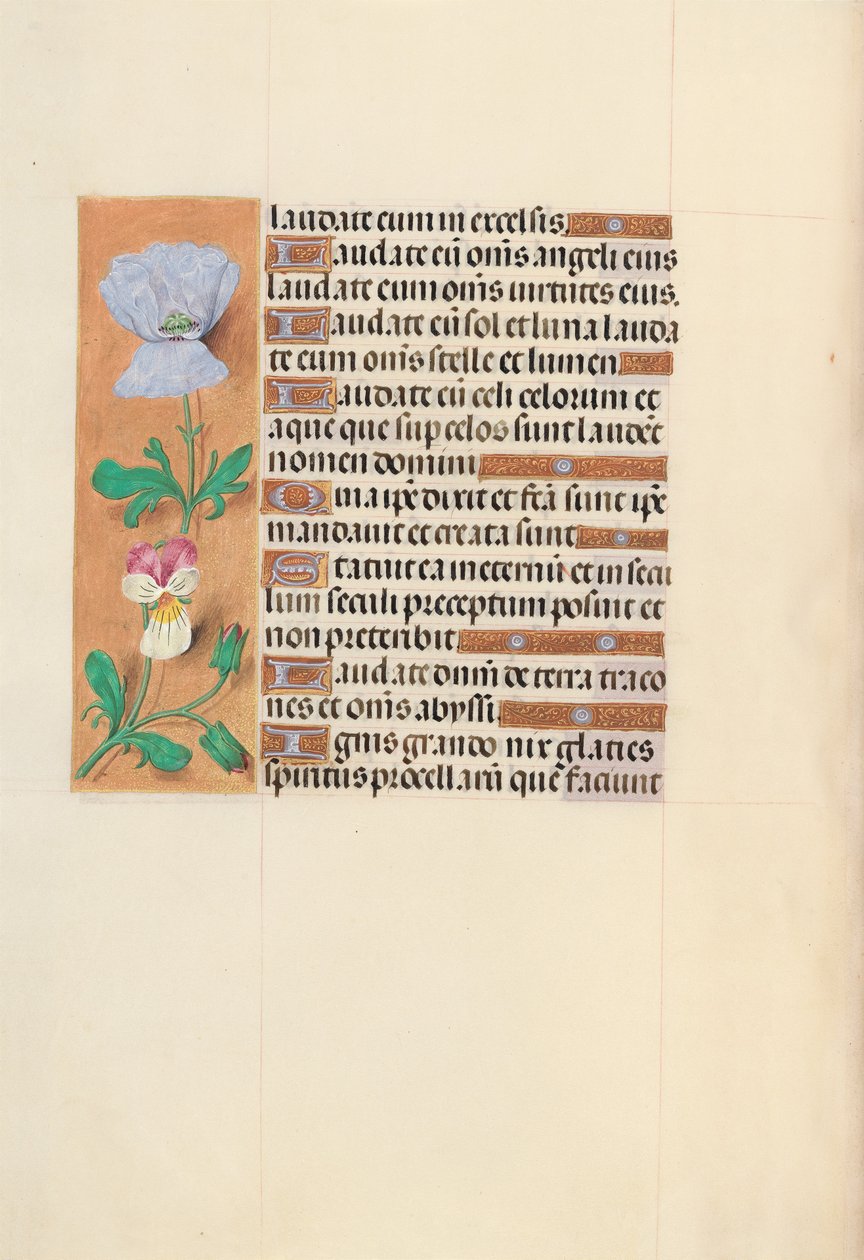 laudate eum in excelsis.
Laudate eū om̄s angeli eius
laudate eum om̄s uirtutes eius.
Laudate eū sol et luna lauda
te eum om̄s stelle et lumen
Laudate eū celi celorum et
aque que sup celos sunt laudēt
nomen domini
Quia ip̄e dixit et fc̄a sunt ip̄e
mandauit et creata sunt
Statuit ea in eternū et in secu
lum seculi preceptum posuit et
non preteribit
Laudate dn̄m de terra traco
nes et om̄s abyssi.
Ignis grando nix glacies
spiritus procellarū que faciunt